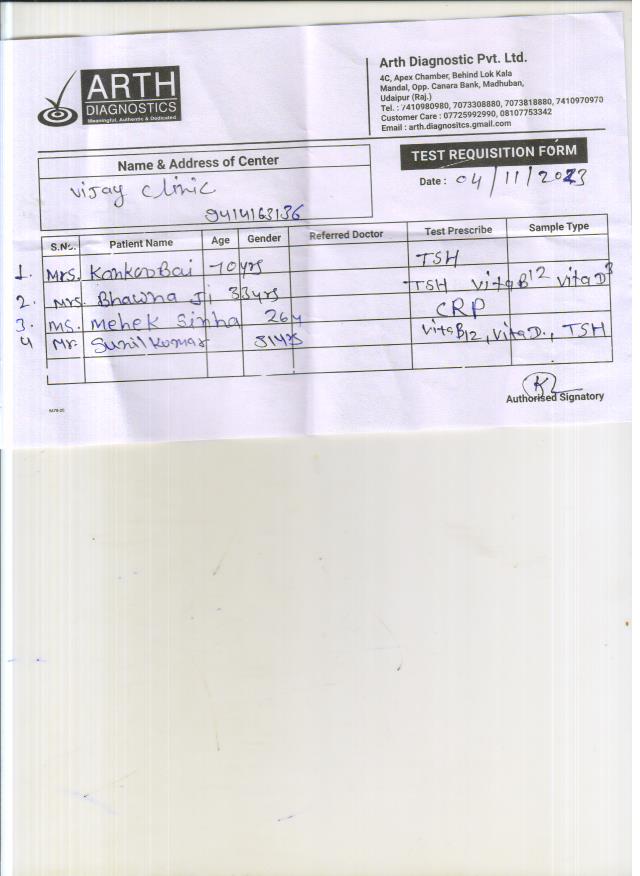 ARTH
DIAGNOSTICS
Meaningful, Authentic & Dedicated
Arth Diagnostic Pvt. Ltd.
4C, Apex Chamber, Behind Lok Kala
Mandal, Opp. Canara Bank, Madhuban,
Udaipur (Raj.)
Tel. : 7410980980, 7073308880, 7073818880, 7410970970
Customer Care : 07725992990, 08107753342
Email : arth.diagnositcs.gmail.com
Name & Address of Center
Vijay clinic
9414163136
TEST REQUISITION FORM
Date : 04/11/2023
S.No. Patient Name Age Gender Referred Doctor Test Prescribe Sample Type
1. Mrs. KankooBai 70yrs TSH
2. Mrs. Bhawna Ji 33yrs TSH VitaB12 VitaD3
3. MS. Mehek Sinha 26y CRP
4 Mr. Sunil Kumar 31yrs VitaB12, VitaD., TSH
Authorised Signatory